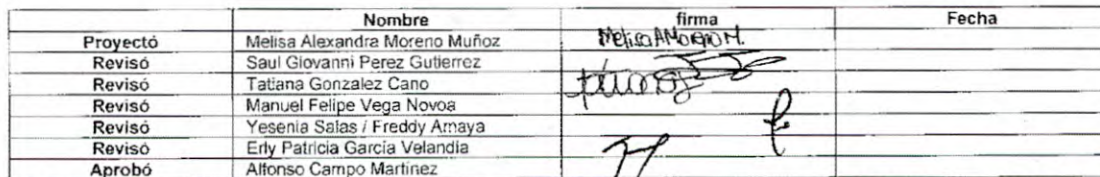 Nombre firma Fecha
Proyectó Melisa Alexandra Moreno Muñoz Melisa A Moreno M.
Revisó Saul Giovanni Perez Gutierrez
Revisó Tatiana Gonzalez Cano
Revisó Manuel Felipe Vega Novoa
Revisó Yesenia Salas / Freddy Amaya
Revisó Erly Patricia García Velandia
Aprobó Alfonso Campo Martínez